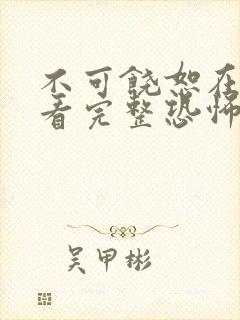 不可饶恕在
看完整恐怖
吴甲彬